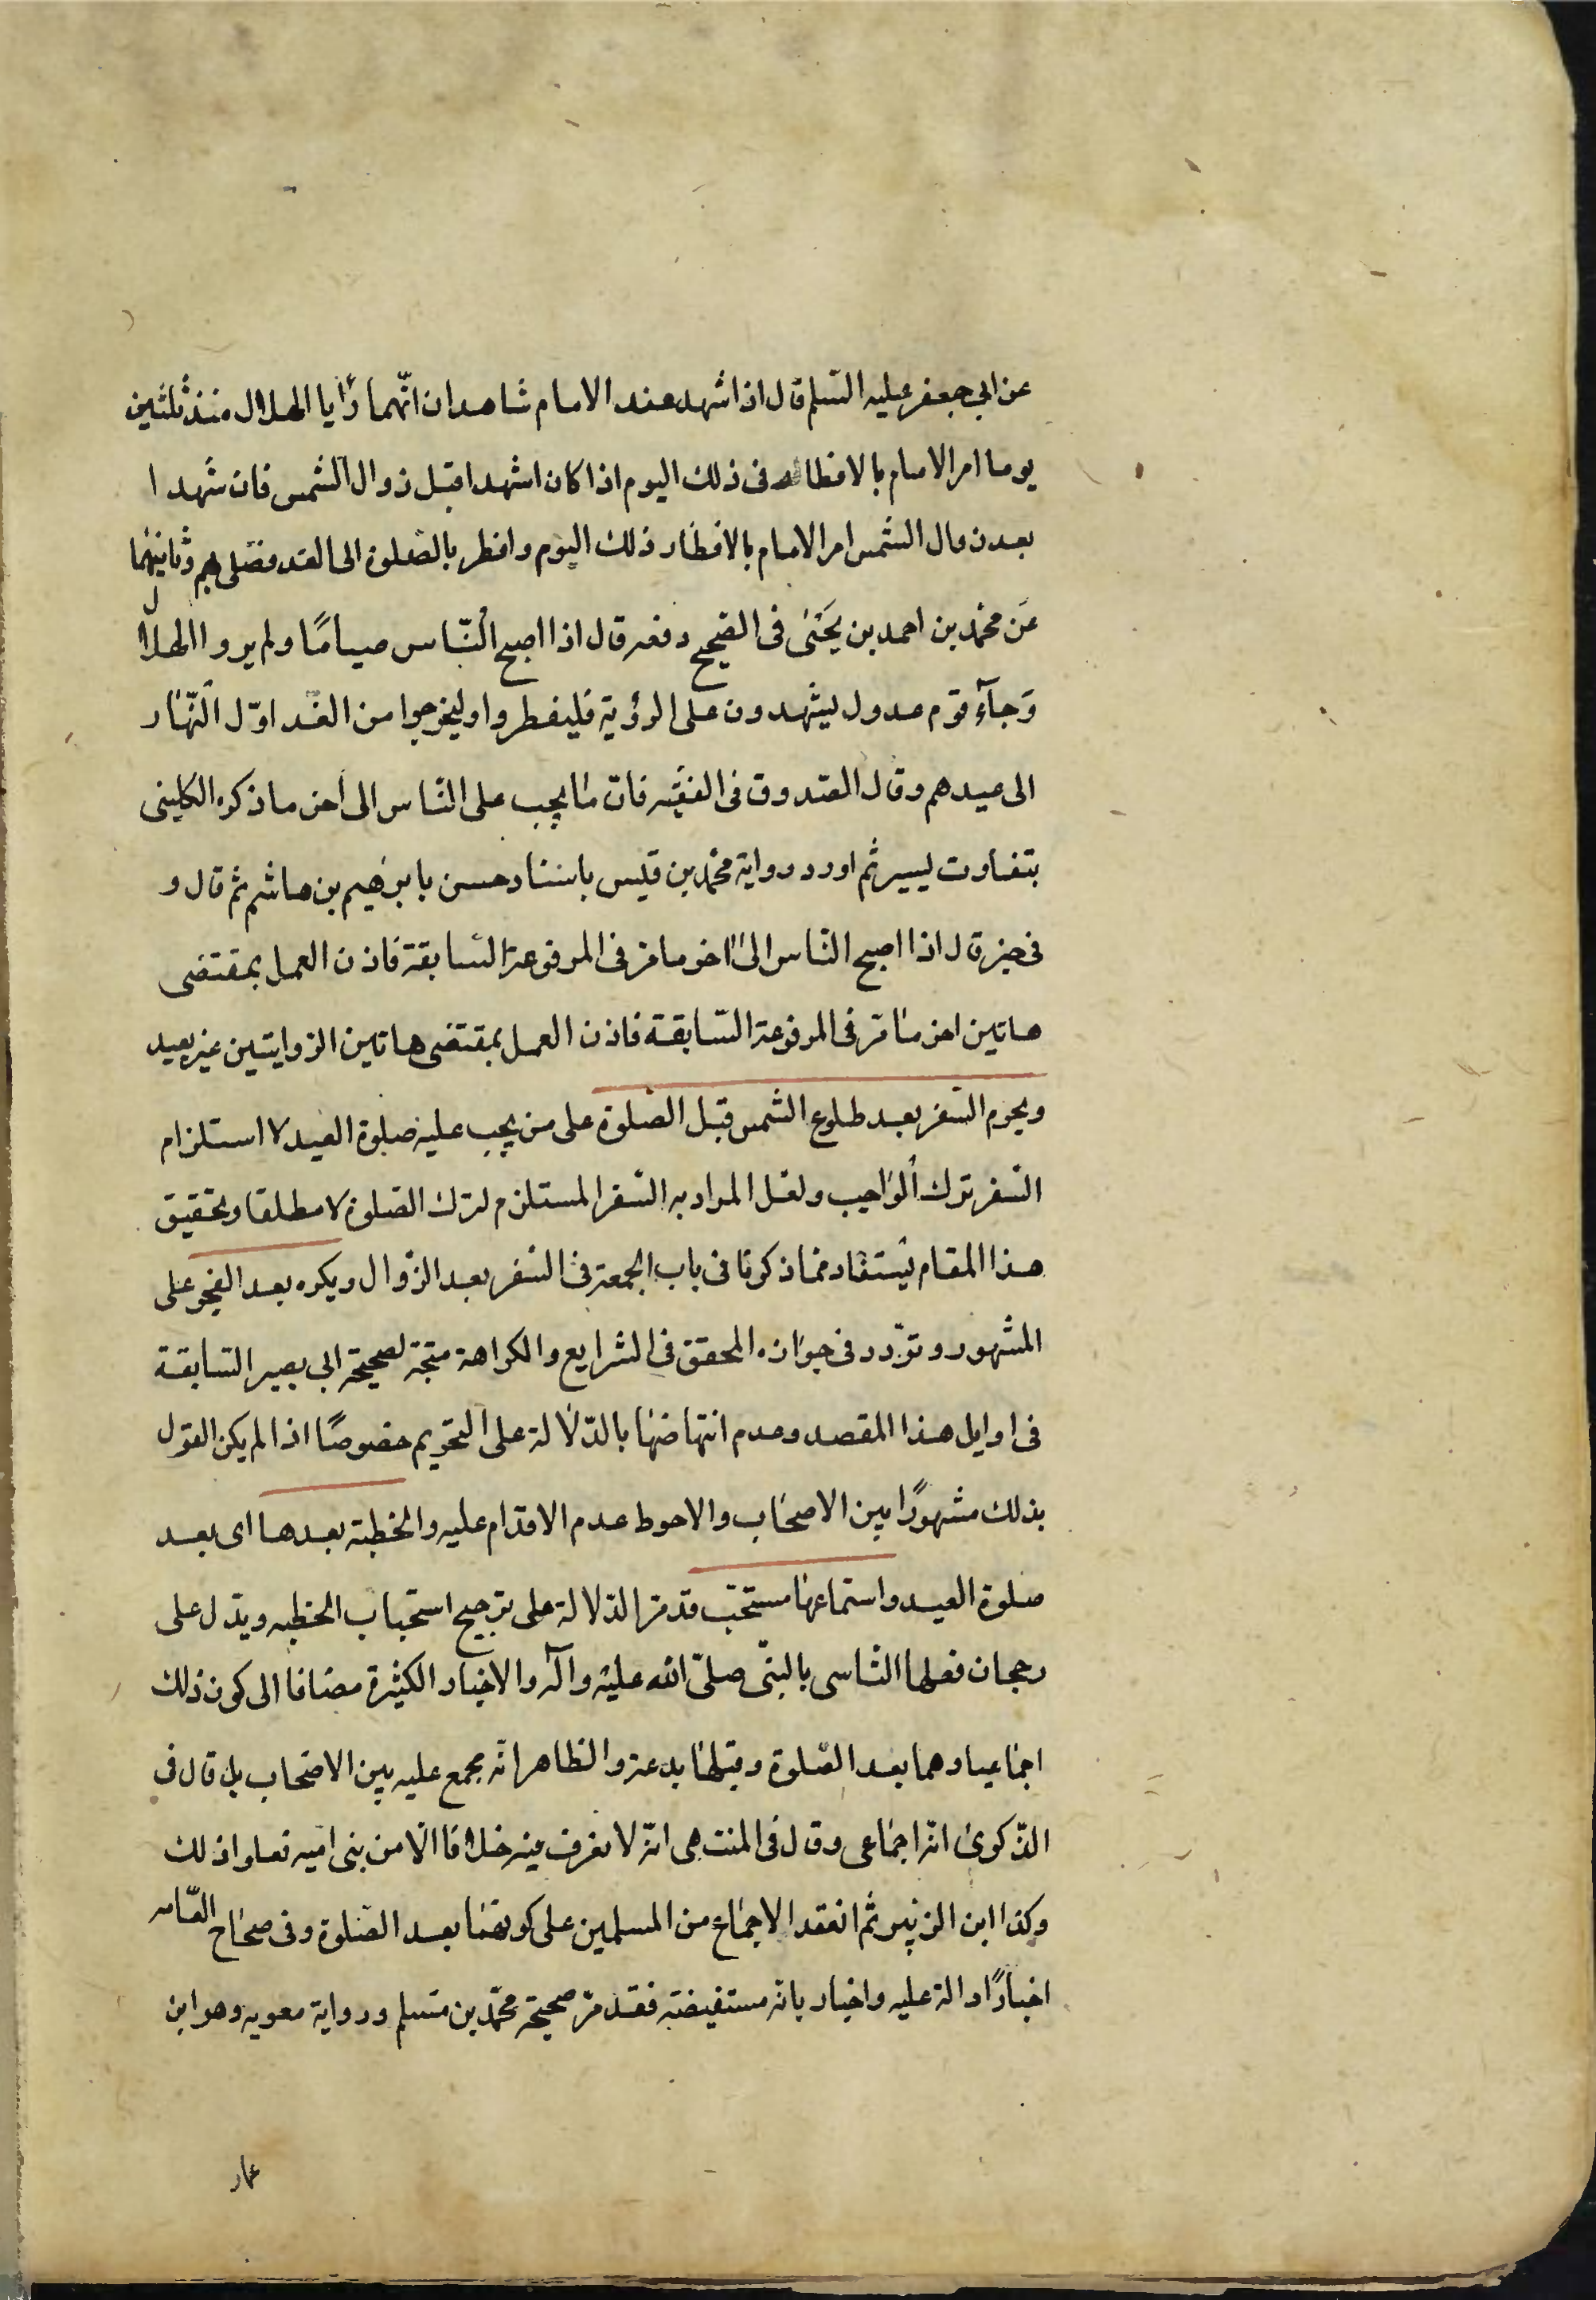 عن ابي جعفر عليه السّلم قال اذا شهد عند الامام شاهدان انّهما رأيا الهلال منذ ثلثين
يوما امر الامام بالافطار فى ذلك اليوم اذا كان اشهدا قبل زوال الشمس فان شهدا
بعد زوال الشمس امر الامام بالافطار ذلك اليوم و افطر بالصّلوة الى الغد فصّلى بهم وثانيهما
عن محمّد بن احمد بن يحيى فى الصّحيح رفعه قال اذا اصبح النّاس صيامًا ولم يروا الهلال
وجآء قوم عدول ليشهدون على الرؤية فليفطروا وليخرجوا من الغد اوّل النّهار
الى عيدهم وقال الصّدوق فى الفقيه فان ما يجب على النّاس الى اخر ما ذكره الكلينى
بتفاوت ليسير ثم اورد رواية محمّد بن قيس باسناد حسن بابرهيم بن هاشم ثم قال و
فى خبر قال اذا اصبح النّاس الى اخر ما مر فى المرفوعة السّابقة فاذن العمل بمقتضى
هاتين اخر ما مّر فى المرفوعة السّابقة فاذن العمل بمقتضى هاتين الروايتين غير بعيد
ويحرم السّفر بعد طلوع الشمس قبل الصّلوة على من يجب عليه صلوة العيد لا استلزام
السّفر ترك الواجب ولعل المراد به السّفر المستلزم لترك الصّلوة لا مطلقا وتحقيق
هذا المقام يستفاد مما ذكرنا فى باب الجمعة فى السّفر بعد الزّوال ويكره بعد الفجر على
المشهور وتردّد فى جوازه المحقق فى الشرايع والكراهة متجة لصحيحة ابى بصير السّابقة
فى اوايل هذا المقصد وعدم انتهاضها بالدّلالة على التحريم خصوصًا اذا لم يكن القول
بذلك مشهورًا بين الاصحاب والاحوط عدم الاقدام عليه والخطبة بعدها اى بعد
صلوة العيد واستماعها مستحبّ قد مّر الدّلالة على ترجيح استحباب الخطبه ويدّل على
رجحان فعلها التاسى بالنبّى صلّى الله عليه وآله والاخبار الكثيرة مضافا الى كون ذلك
اجماعيا وهما بعد الصّلوة وقبلها بدعة والظاهر انّه مجمع عليه بين الاصحاب بل قال فى
الذّكرى انّه اجماعى وقال فى المنتهى انّه لا نعرف فيه خلافا الّا من بنى اميه فعلوا ذلك
وكذا ابن الزبير ثم انعقد الاجماع من المسلمين على كونهما بعد الصّلوة وفى صحاح العّامه
اخبارًا دالة عليه واخبار بانه مستفيضة فقد مّر صحيحة محمّد بن مسلم ورواية معويه وهو ابن
عمار